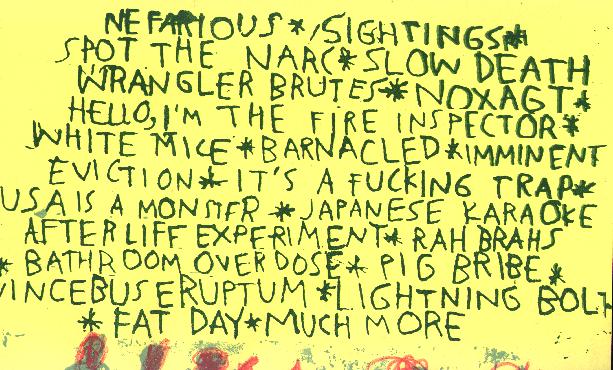 NEFARIOUS * SIGHTINGS *
SPOT THE NARC * SLOW DEATH
WRANGLER BRUTES * NOXAGT *
HELLO, I'M THE FIRE INSPECTOR *
WHITE MICE * BARNACLED * IMMINENT
EVICTION * IT'S A FUCKING TRAP *
USA IS A MONSTER * JAPANESE KARAOKE
AFTERLIFE EXPERIMENT * RAH BRAHS
* BATHROOM OVERDOSE * PIG BRIBE *
VINCEBUS ERUPTUM * LIGHTNING BOLT
* FAT DAY * MUCH MORE